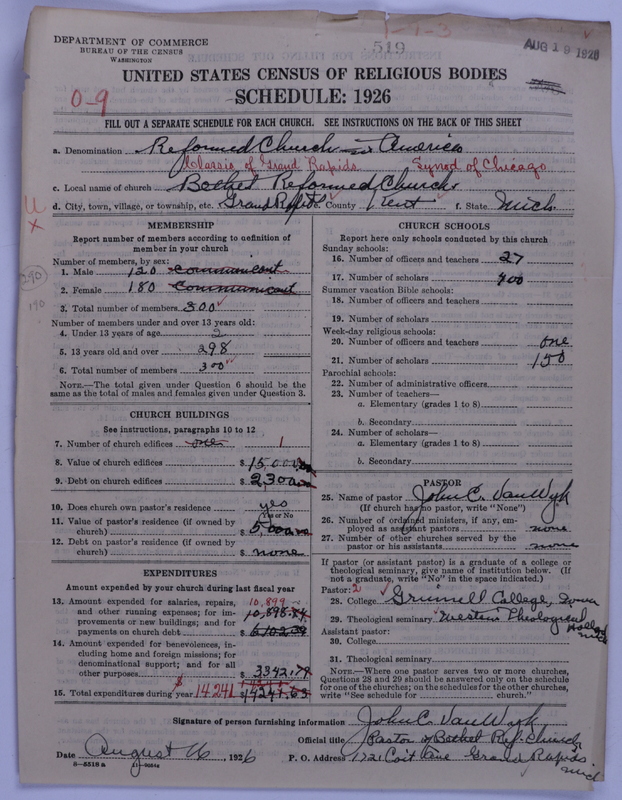 1-1-3
DEPARTMENT OF COMMERCE
BUREAU OF THE CENSUS
WASHINGTON
519
AUG 19 1926
UNITED STATES CENSUS OF RELIGIOUS BODIES
SCHEDULE: 1926
0-9
FILL OUT A SEPARATE SCHEDULE FOR EACH CHURCH. SEE INSTRUCTIONS ON THE BACK OF THIS SHEET
a. Denomination Reformed Church in America
Classis of Grand Rapids Synod of Chicago
c. Local name of church Bethel Reformed Church
d. City, town, village, or township, etc. Grand Rapids e. County Kent f. State Mich.
MEMBERSHIP
Report number of members according to definition of member in your church
Number of members, by sex:
1. Male 120 communicant
2. Female 180 communicant
290
190
3. Total number of members 300
Number of members under and over 13 years old:
4. Under 13 years of age 2
5. 13 years old and over 298
6. Total number of members 300
NOTE.—The total given under Question 6 should be the same as the total of males and females given under Question 3.
CHURCH BUILDINGS
See instructions, paragraphs 10 to 12
7. Number of church edifices one 1
8. Value of church edifices $ 15,000.00
9. Debt on church edifices $ 2,300.00
10. Does church own pastor's residence yes
Yes or No
11. Value of pastor's residence (if owned by church) $ 5,000.00
12. Debt on pastor's residence (if owned by church) $ none
EXPENDITURES
Amount expended by your church during last fiscal year
13. Amount expended for salaries, repairs, and other running expenses; for improvements or new buildings; and for payments on church debt 10,899 10,898.84 $ 6102.39
14. Amount expended for benevolences, including home and foreign missions; for denominational support; and for all other purposes $ 3342.79
15. Total expenditures during year $ 14241 $ 14241.63
CHURCH SCHOOLS
Report here only schools conducted by this church
Sunday schools:
16. Number of officers and teachers 27
17. Number of scholars 400
Summer vacation Bible schools:
18. Number of officers and teachers
19. Number of scholars
Week-day religious schools:
20. Number of officers and teachers one
21. Number of scholars 150
Parochial schools:
22. Number of administrative officers
23. Number of teachers—
a. Elementary (grades 1 to 8)
b. Secondary
24. Number of scholars—
a. Elementary (grades 1 to 8)
b. Secondary
PASTOR
25. Name of pastor John C. Van Wyk
(If church has no pastor, write "None")
26. Number of ordained ministers, if any, employed as assistant pastors none
27. Number of other churches served by the pastor or his assistants none
If pastor (or assistant pastor) is a graduate of a college or theological seminary, give name of institution below. (If not a graduate, write "No" in the space indicated.)
Pastor: 2
28. College Grinnell College, Iowa
29. Theological seminary Western Theological Holland Mich
Assistant pastor:
30. College
31. Theological seminary
NOTE.—Where one pastor serves two or more churches, Questions 28 and 29 should be answered only on the schedule for one of the churches; on the schedules for the other churches, write "See schedule for church."
Signature of person furnishing information John C. Van Wyk
Official title Pastor of Bethel Ref. Church
Date August 16, 1926
P. O. Address 1721 Coit Ave Grand Rapids, Mich
8—5518 a